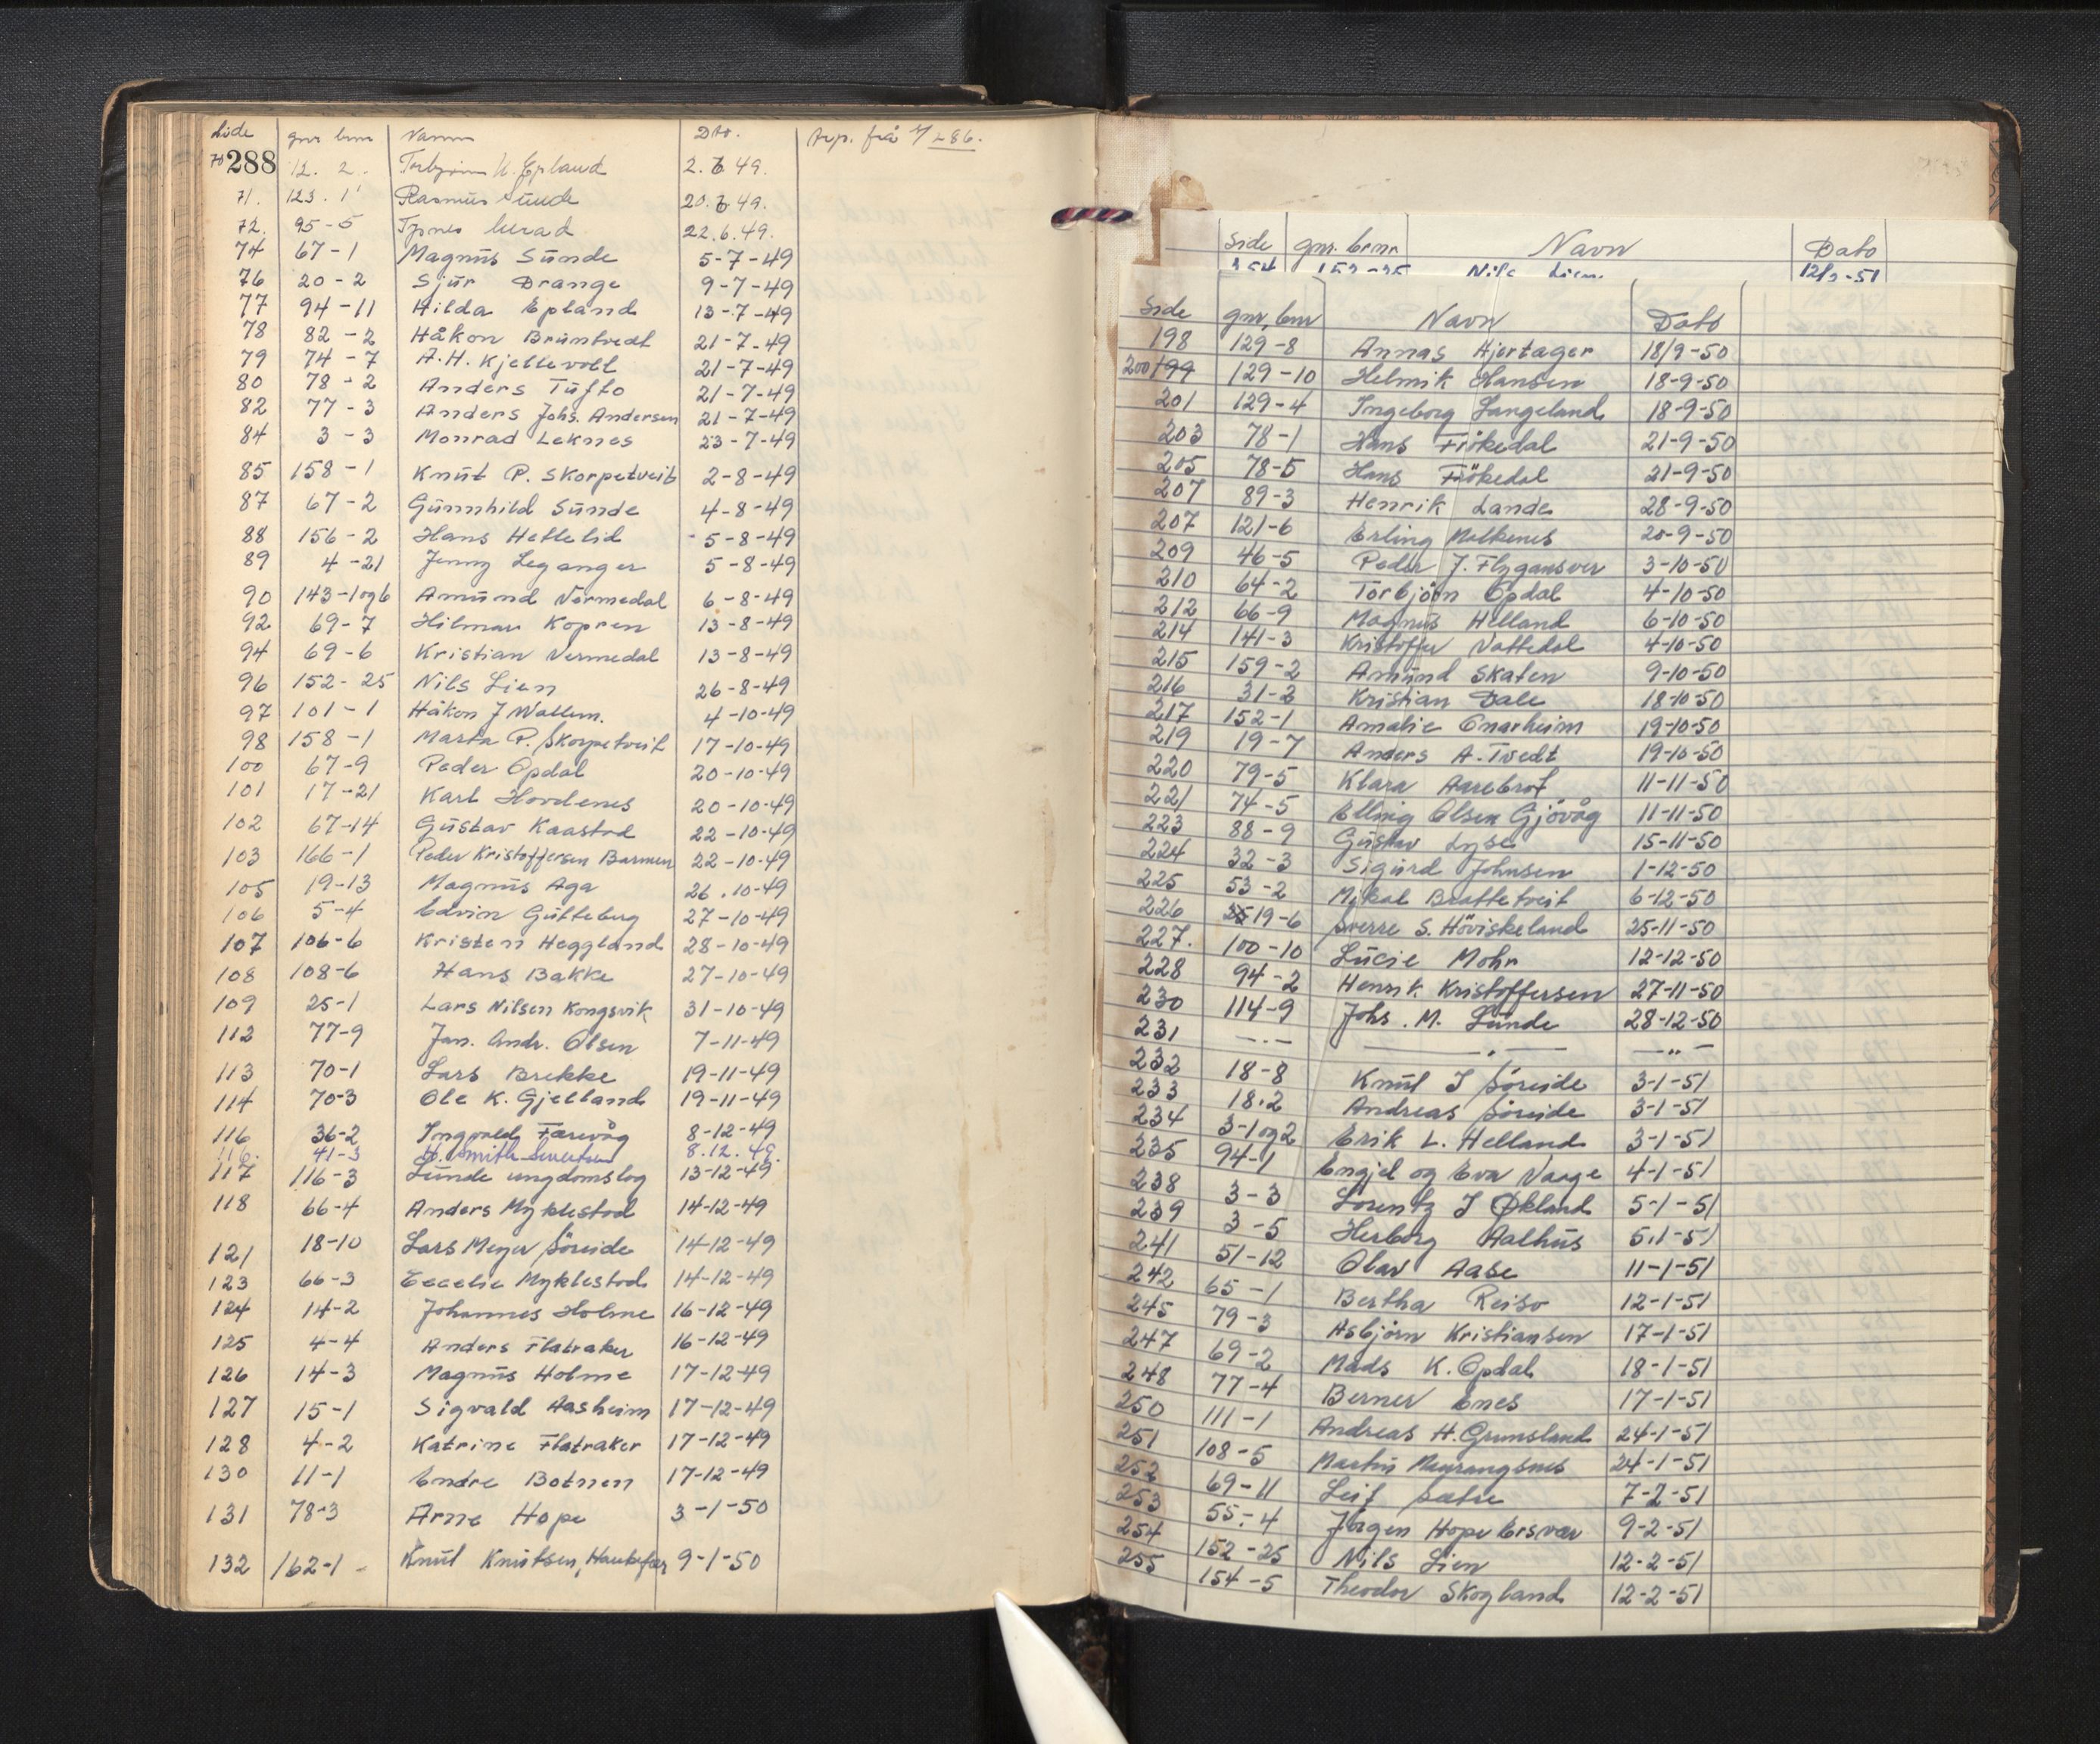 Side gnr bnr Namn Dto. Avp. frå s/ 286.
70 288 12. 2. Torbjørn U. Epland 2. 6. 49.
71. 123. 1 Rasmus Sunde 20. 6. 49.
72. 95-5 22. 6. 49.
74 67-1 Magnus Sunde 5-7-49
76 20-2 Sjur Drange 9-7-49
77 94-11 Hilda Epland 13-7-49
78 82-2 Håkon Bruntvedt 21-7-49
79 74-7 A. H. Kjellevoll 21-7-49
80 78-2 Anders Tufto 21-7-49
82 77-3 Anders Johs. Andersen 21-7-49
84 3-3 Monrad Leknes 23-7-49
85 158-1 Knut P. Skorpetveit 2-8-49
87 67-2 Gunnhild Sunde 4-8-49
88 156-2 Hans Hettelid 5-8-49
89 4-21 Jenny Leganger 5-8-49
90 143-1og6 Amund Vermedal 6-8-49
92 69-7 Hilmar Kopren 13-8-49
94 69-6 Kristian Vermedal 13-8-49
96 152-25 Nils Lien 26-8-49
97 101-1 Håkon J Wallem. 4-10-49
98 158-1 Marta P. Skorpetveit 17-10-49
100 67-9 Peder Opdal 20-10-49
101 17-21 Karl Hovdenes 20-10-49
102 67-14 Gustav Kaastad 22-10-49
103 166-1 Peder Kristoffersen Barmen 22-10-49
105 19-13 Magnus Aga 26.10-49
106 5-4 Edvin Gutteberg 27-10-49
107 106-6 Kristen Heggland 28-10-49
108 108-6 Hans Bakke 27-10-49
109 25-1 Lars Nilsen Kongsvik 31-10-49
112 77-9 Jan. Andr. Olsen 7-11-49
113 70-1 Lars Brekke 19-11-49
114 70-3 Ole K. Gjelland 19-11-49
116 36-2 Ingvald Færevåg 8-12-49
116. 41-3 H. Smith-Sivertsen 8.12.49.
117 116-3 Lunde ungdomslog 13-12-49
118 66-4 Anders Myklestad 14-12-49
121 18-10 Lars Meyer Söreide 14-12-49
123 66-3 Cecelie Myklestad 14-12-49
124 14-2 Johannes Holme 16-12-49
125 4-4 Anders Flatraker 16-12-49
126 14-3 Magnus Holme 17-12-49
127 15-1 Sigvald Hasheim 17-12-49
128 4-2 Katrine Flatraker 17-12-49
130 11-1 Endre Botnen 17-12-49
131 78-3 Arne Hope 3-1-50
132 162-1 Knut Knutsen, Haukefær 9-1-50
Side gnr. brnr Navn Dato
254 152-25 Nils Lien 12/2-51
Side gnr, bnr Navn Dato
198 129-8 Annas Hjortager 18/9-50
200 199 129-10 Helmik Hansen 18-9-50
201 129-4 Ingeborg Langeland 18-9-50
203 78-1 Hans Fiökedal 21-9-50
205 78-5 Hans Fiökedal 21-9-50
207 89-3 Henrik Lande 28-9-50
207 121-6 Erling Malkenes 20-9-50
209 46-5 Peder J. Flygansver 3-10-50
210 64-2 Torbjörn Opdal 4-10-50
212 66-9 Magnus Helland 6-10-50
214 141-3 Kristoffer Nattedal 4-10-50
215 159-2 Amund Skaten 9-10-50
216 31-2 Kristian Dale 18-10-50
217 152-1 Amalie Onarheim 19-10-50
219 19-7 Anders A. Tvedt 19-10-50
220 79-5 Klara Aarebrot 11-11-50
221 74-5 Elling Olsen Gjövåg 11-11-50
223 88-9 Gustav Lyse 15-11-50
224 32-3 Sigurd Johnsen 1-12-50
225 53-2 Mikal Brattetveit 6-12-50
226 19-6 Sverre S. Höviskeland 25-11-50
227. 100-10 Lucie Mohn 12-12-50
228 94-2 Henrik Kristoffersen 27-11-50
230 114-9 Johs. M. Lunde 28-12-50
231 —.— —.— —"—
232 18-8 Knut J Söreide 3-1-51
233 18.2 Andreas Söreide 3-1-51
234 3-1og2 Erik L. Helland 3-1-51
235 94-1 Engjel og Eva Vaage 4-1-51
238 3-3 Lorentz J Økland 5-1-51
239 3-5 Herborg Aalhus 5.1-51
241 51-12 Olav Aase 11-1-51
242 65-1 Bertha Reiso 12-1-51
245 79-3 Asbjörn Kristiansen 17-1-51
247 69-2 Mads K. Opdal 18-1-51
248 77-4 Berner Enes 17-1-51
250 111-1 Andreas H. Grunsland 24-1-51
251 108-5 Martin Maurangsnes 24-1-51
252 69-11 Leif Sætre 7-2-51
253 55.-4 Jörgen Hope Ersvær 9-2-51
254 152-25 Nils Lien 12-2-51
255 154-5 Theodor Skogland 12-2-51